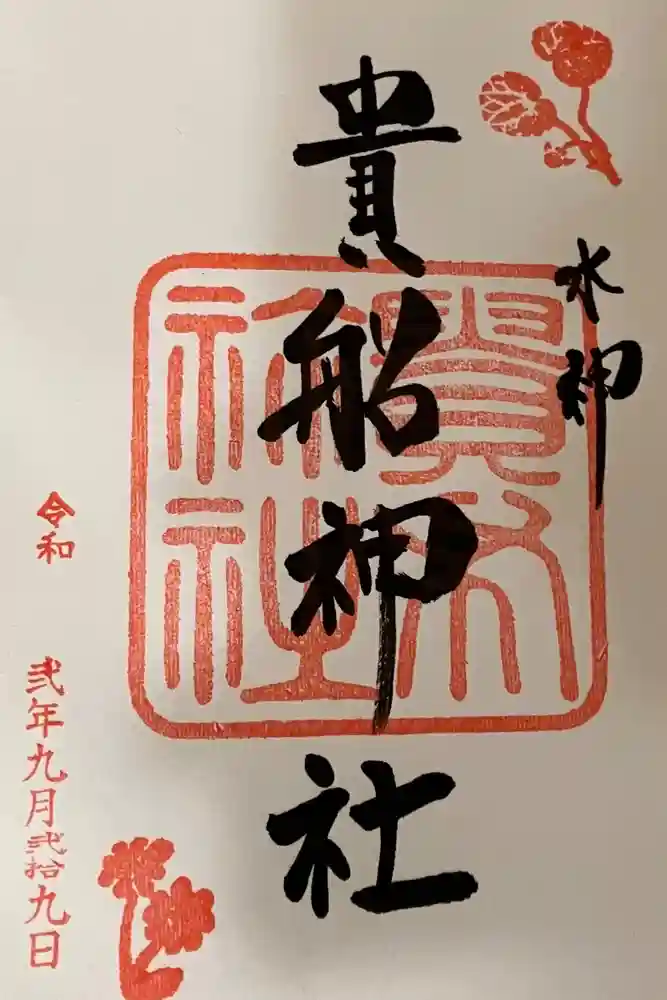 水神
貴船神社
貴布
祢社
令和 弐年九月弐拾九日